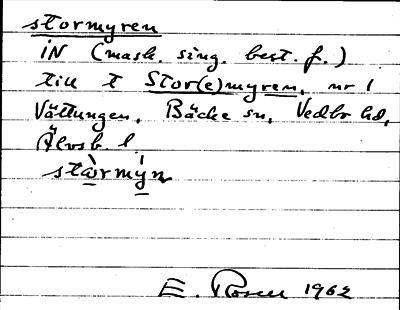 stormyren
iN (mask. sing. best. f.)
till t Stor(e)myren, nr 1
Vättungen, Bäcke sn, Vedbo hd,
Älvsb l.
stɷ̀rmýn
E. Rosell 1962